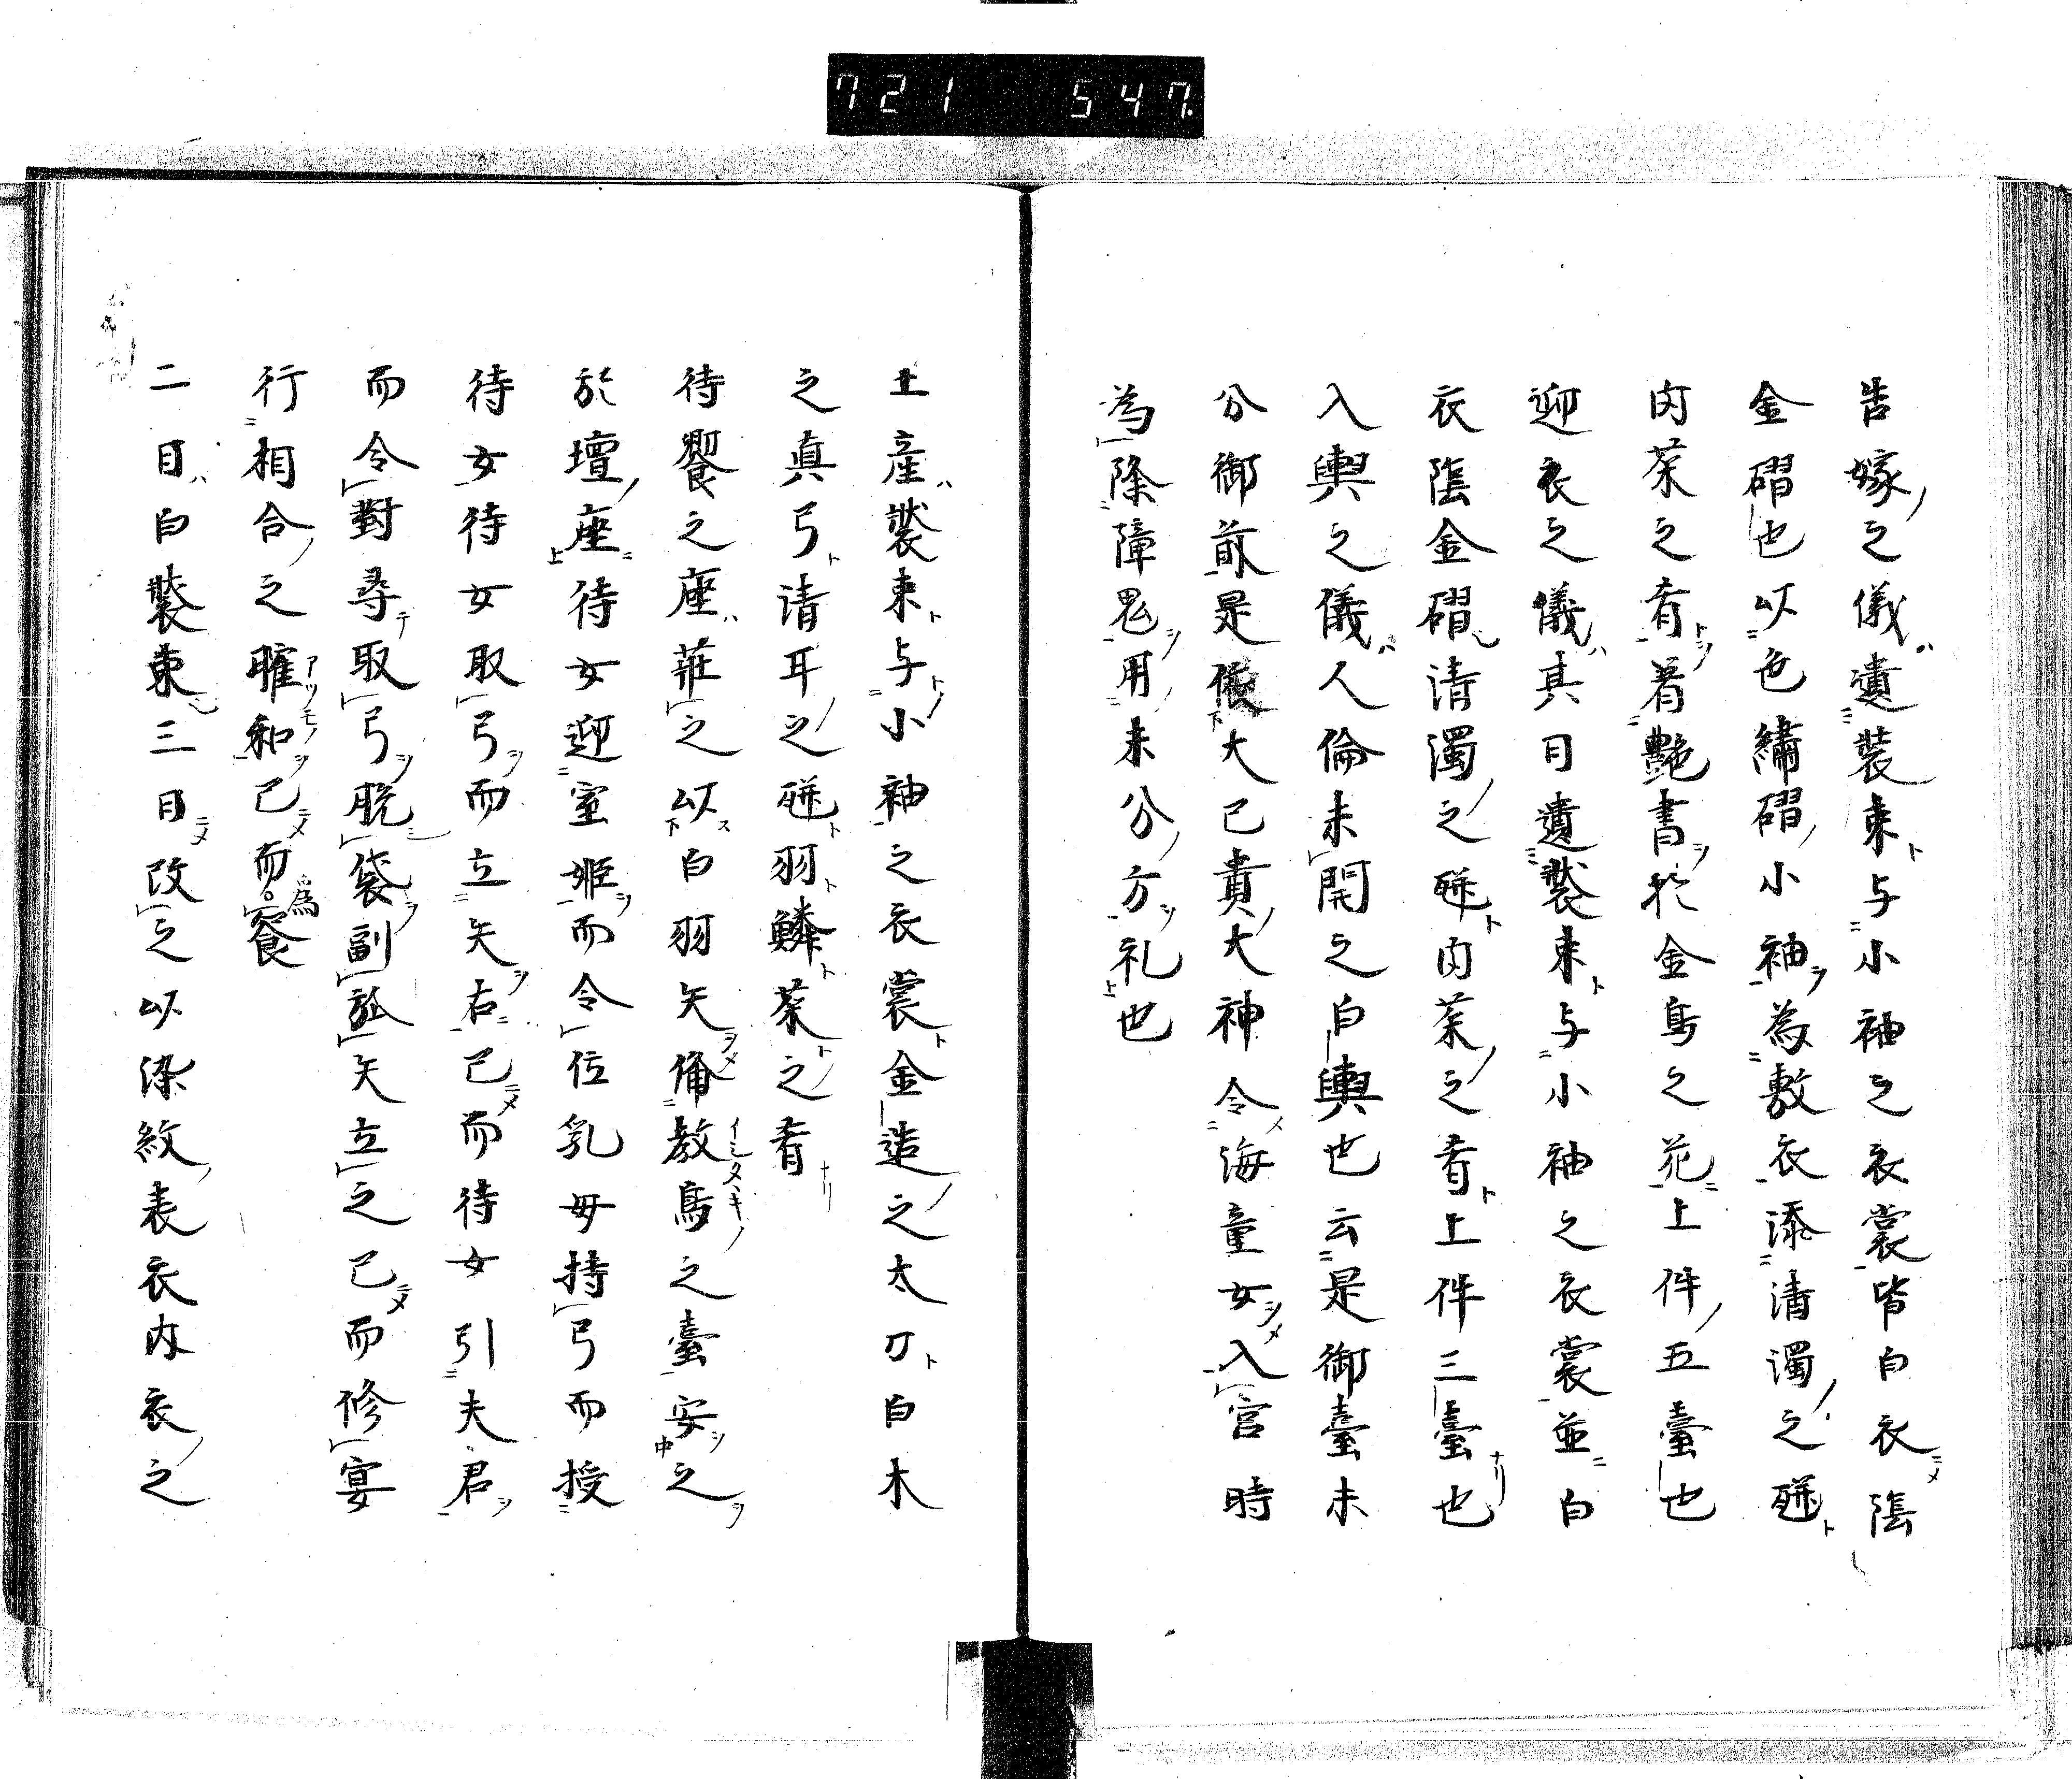 721 547
告嫁之儀遺装束与小袖之衣裳皆白衣陰
金磖也以色繡磖小袖為敷衣添清濁之瓶
肉菜之肴着艶書於金鳥之花上件五臺也
迎衣之儀其日遺装束与小袖之衣裳並白
衣陰金磖清濁之瓶肉菜之肴上件三臺也
入輿之儀人倫未開之白輿也云是御臺未
分御前是儀大己貴大神令海童女入宮時
為除障鬼用未分方礼也
土産装束与小袖之衣裳金造之太刀白木
之真弓清耳之瓶羽鱗菜之肴
待饗之座莊之以白羽矢備教鳥之臺安之
於壇座待女迎室姫而令位乳母持弓而授
待女待女取弓而立矢右已而待女引夫君
而令對尋取弓脱袋副弧矢立之已而修宴
行相合之臛和已而為餐
二日白装束三日改之以染紋表衣内衣之